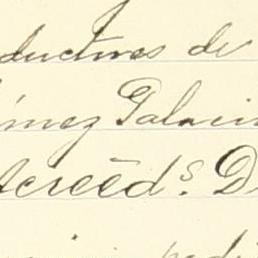 ductores de
ómez Palacio
Acreéds. D
pedi